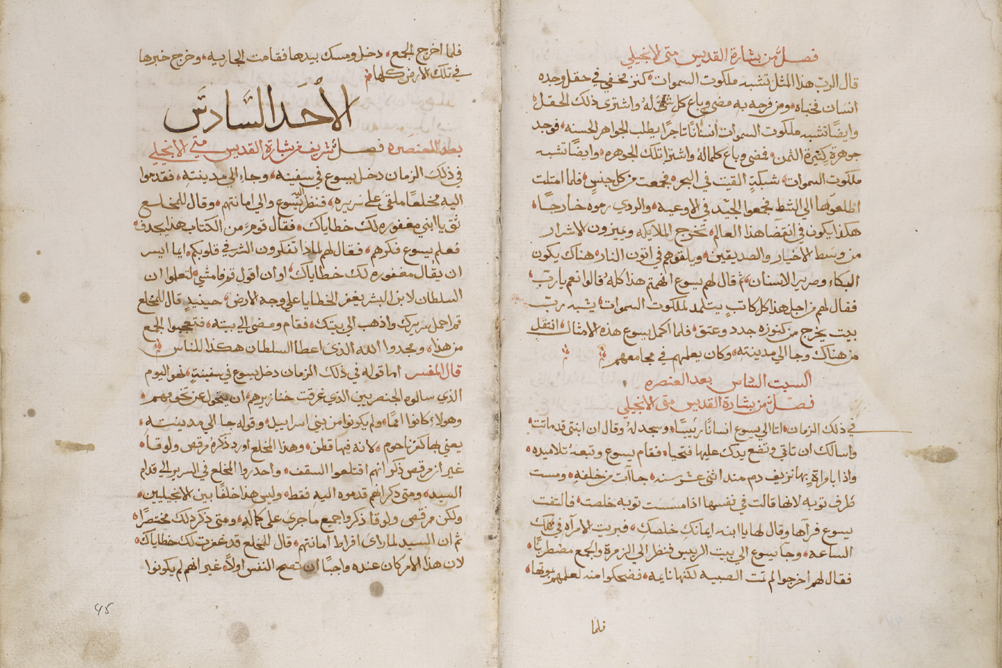 فصل من بشارة القديس متى الانجيلي
قال الرب هذا المثل تشبه ملكوت السموات كنز مخفي في حقل وجده
انسان فخباه ومن فرحه به مضى وباع كل له واشترى ذلك الحقل
وايضا تشبه ملكوت السموات انسانا تاجرا يطلب الجواهر الحسنه فوجد
جوهرة كثيرة الثمن فمضى وباع كلماله واشترا تلك الجوهره وايضا تشبه
ملكوت السموات شبكة القيت في البحر فجمعت من كل جنس فلما امتلت
اطلعوها الى الشط فجمعوا الجيد في الاوعية والردي رموه خارجا
هكذا يكون في انقضا هذا العالم تخرج الملايكه ويميزون الاشرار
من وسط الاخيار والصديقين ويلقوهم في اتون النار هناك يكون
البكاء وصرير الاسنان ثم قال لهم يسوع افهمتم هذا كله قالوا نعم يارب
فقال لهم من اجل هذا كل كاتب يتلمد لملكوت السموات يشبه رب
بيت يخرج من كنوزه جدد وعتق فلما اكمل يسوع هذه الامثال انتقل
من هناك وجا الى مدينته وكان يعلمهم في مجامعهم
السبت السادس بعد العنصره
فصل من بشارة القديس متى الانجيلي
في ذلك الزمان اتا الى يسوع انسانا رييسا وسجد له وقال ان ابنتي قد ماتت
واسالك ان تاتي تضع يدك عليها فتحيا فقام يسوع وتبعه تلاميده
واذا بامراة بها نزيف دم مند اثنى عشر سنه جاات من خلفه ومست
طرف ثوبه لانها قالت في نفسها اذا مسست ثوبه خلصت فالتفت
يسوع فرآها وقال لها يا ابنه ايمانك خلصك فبريت الامراه في تلك
الساعه وجا يسوع الى بيت الرييس فنظر الى الزمرة والجمع مضطربا
فقال لهم اخرجوا لم تمت الصبيه لكنها نايمه فضحكوا منه لعلمهم بموتها
فلما
فلما اخرج الجمع دخل ومسك بيدها فقامت الجاريه وخرج خبرها
في تلك الارض كلها
الاحد السادس
بعد العنصره فصل شريف من بشارة القديس متى الانجيلي
في ذلك الزمان دخل يسوع في سفينه وجاء الى مدينته فقدموا
اليه مخلعا ملقى على سريره فنظر يسوع الى امانتهم وقال للمخلع
ثق يا ابني مغفوره لك خطاياك فقال قوم من الكتاب هذا يجدف
فعلم يسوع فكرهم فقال لهم لماذا تفكرون الشر في قلوبكم ايما ايسر
ان يقال مغفوره لك خطاياك او ان اقول قم فامشي لتعلموا ان
السلطان لابن البشر يغفر الخطايا على وجه الارض حينيد قال للمخلع
قم احمل سريرك واذهب الى بيتك فقام ومضى الى بيته فتعجبوا الجمع
من هذا ومجدوا الله الذى اعطا السلطان هكذا للناس
قال المفسر اما قوله في ذلك الزمان دخل يسوع في سفينة فهو اليوم
الذي سالوه الجرجسيين الذي غرقت خنازيرهم ان يتحول عن تخومهم
وهولاء كانوا امما ولم يكونوا من بنى اسراييل وقوله جا الى مدينته
يعني بها كفر ناحوم لانه فيها قطن وهذا المخلع اورد ذكره مرقص ولوقا
غير ان مرقص ذكر انهم اقتلعوا السقف واحدروا المخلع في السرير الى قدام
السيد ومتى ذكر انهم قدموه اليه فقط وليس هذا خلفا بين الانجيليين
ولكن مرقص ولوقا ذكروا جميع ما جرى على كماله ومتى ذكر ذلك مختصرا
ثم ان السيد لما راى افراط امانتهم قال للمخلع قد غفرت لك خطاياك
لان هذا الامر كان عنده واجبا ان تصح النفس اولا غير انهم لم يكونوا